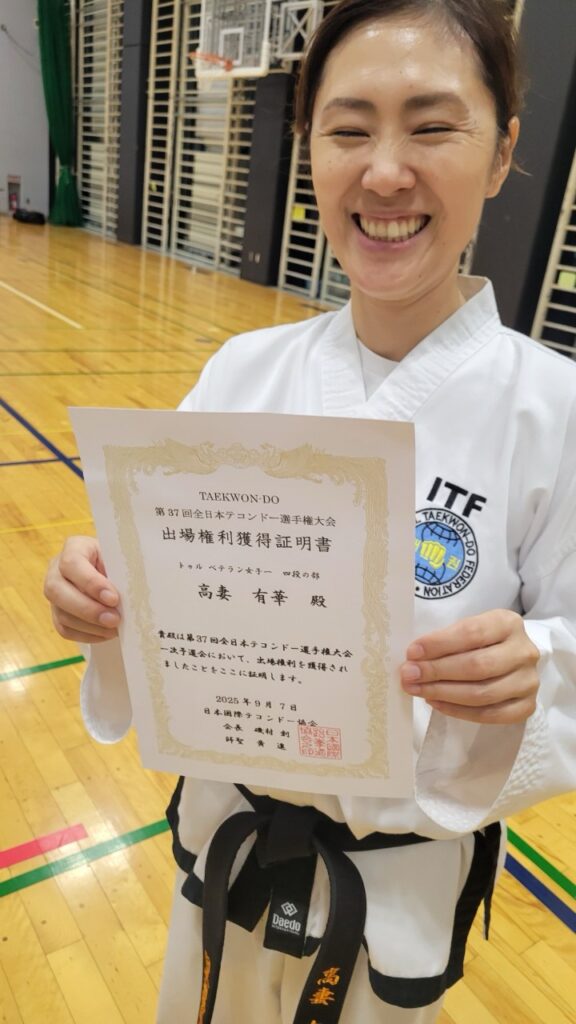 TAEKWON-DO
第37回全日本テコンドー選手権大会
出場権利獲得証明書
トゥル ベテラン女子一 四段の部
高妻 有華 殿
貴殿は第37回全日本テコンドー選手権大会
一次予選会において、出場権利を獲得され
ましたことをここに証明します。
2025年9月7日
日本国際テコンドー協会
会長 磯村 創
師聖 黄 進
ITF
TAEKWON-DO FEDERATION
Daedo
高妻